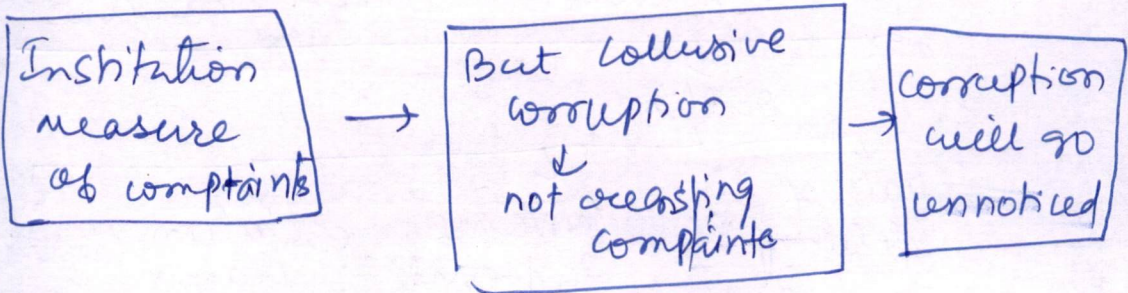 Institution
measure
of complaints
→
But collusive
corruption
↓
not
complainte
→
corruption
will go
unnoticed